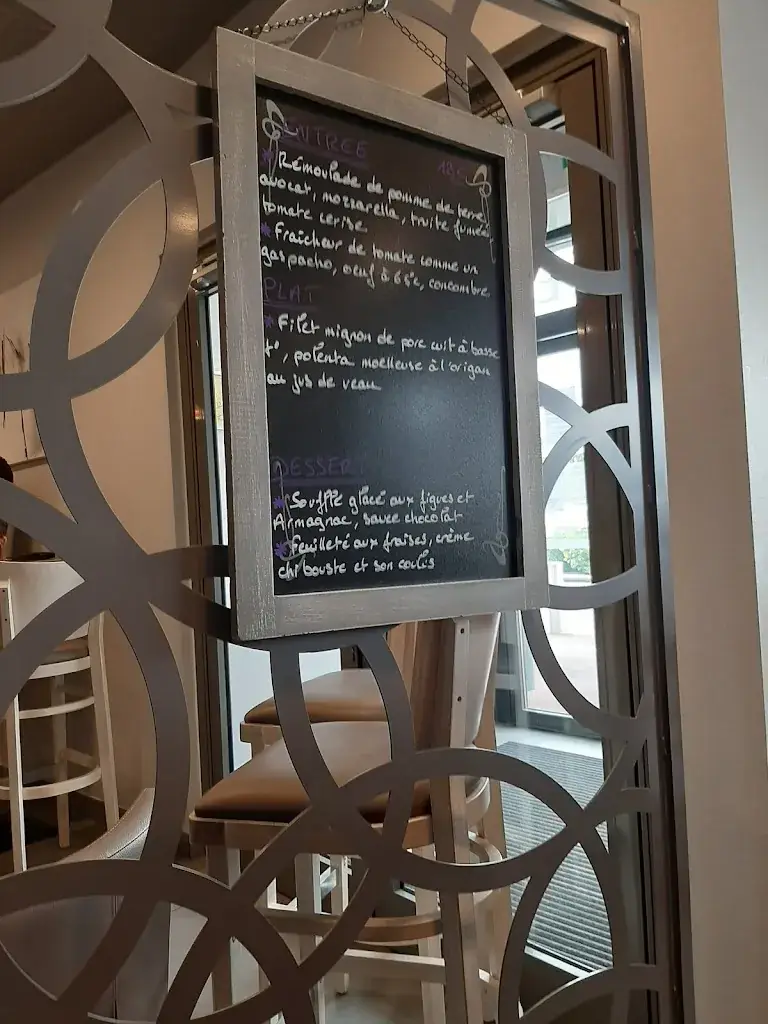 ENTREE
* Rémoulade de pomme de terre,
avocat, mozzarella, truite fumée
tomate cerise
* Fraîcheur de tomate comme un
gaspacho, oeuf à 65°c, concombre.
PLAT
* Filet mignon de porc cuit à basse
t°, polenta moelleuse à l'origan
au jus de veau
DESSERT
* Soufflé glacé aux figues et
Armagnac, sauce chocolat
* Feuilleté aux fraises, crème
chibouste et son coulis